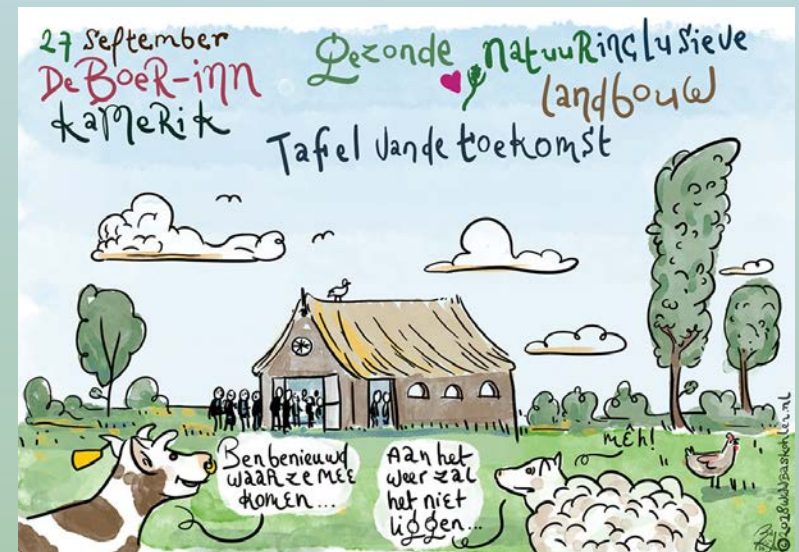 27 September
De BoeR-inn
kaMeRik
Gezonde natuuRinclusieve
landbouw
Tafel van de toekomst
Ben benieuwd
waar ze mee
komen...
Aan het
weer zal
het niet
liggen...
mêh!